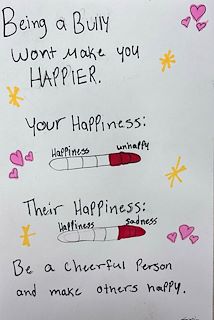 Being a Bully
Wont Make you
HAPPIER.
Your Happiness:
Happiness unhappy
Their Happiness:
Happiness sadness
Be a Cheerful Person
and make others happy.